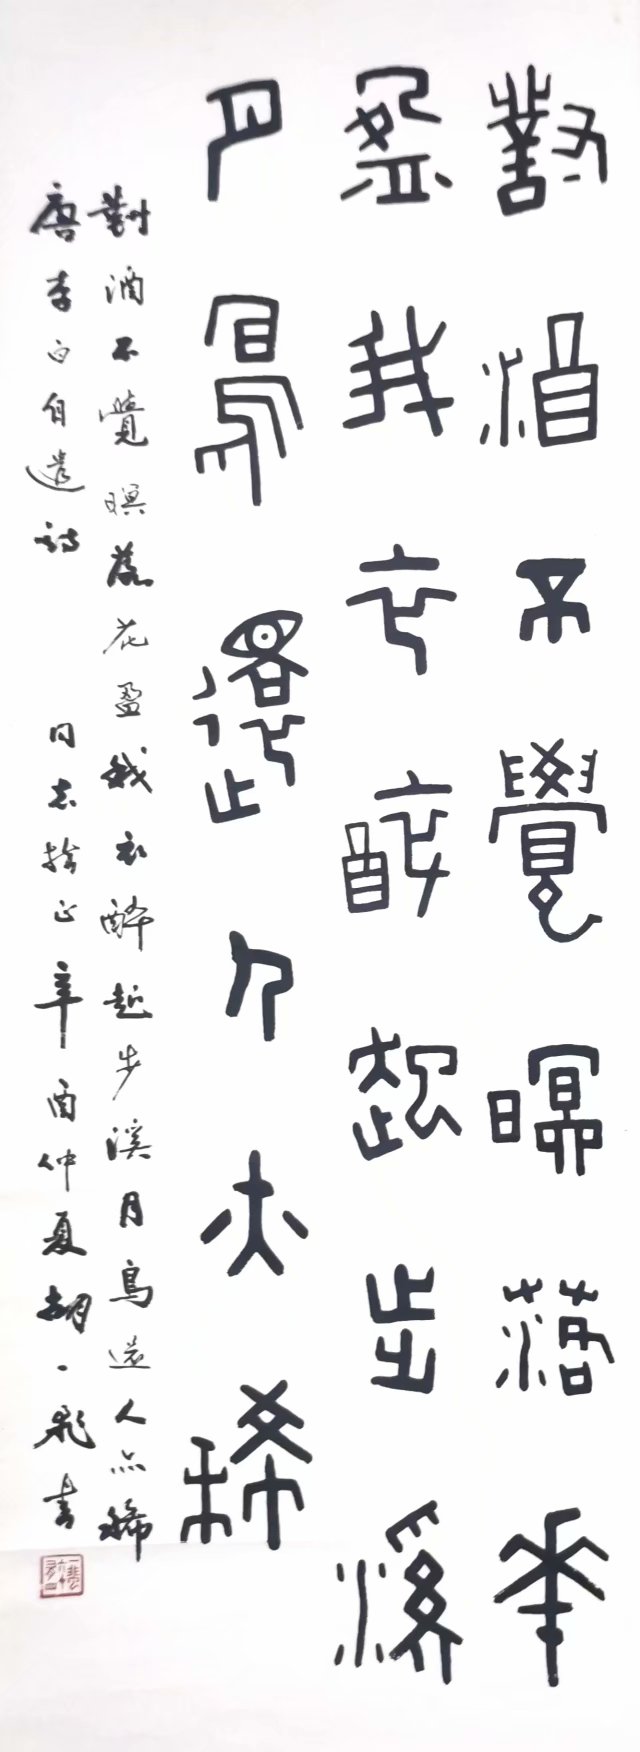 對酒不覺暝落花
盈我衣醉起步溪
月鳥還人亦稀
對酒不覺暝落花盈我衣醉起步溪月鳥還人亦稀
唐李白自遣詩 同志指正辛酉仲夏胡一飛書